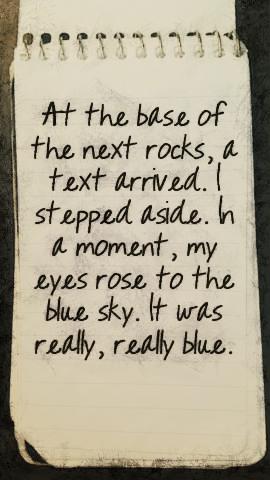 At the base of
the next rocks, a
text arrived. I
stepped aside. In
a moment, my
eyes rose to the
blue sky. It was
really, really blue.